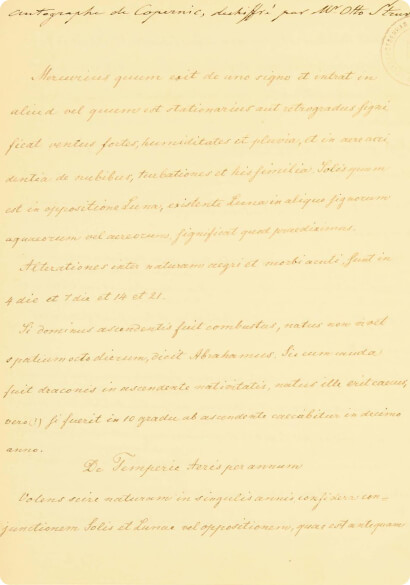 autographe de Copernic, dechiffré par Mr Otto Struv
Mercurius quum exit de uno signo et intrat in
aliud vel quum est stationarius aut retrogradus signi
ficat ventus fortes, humiditates et pluvia, et in aere
dentia de nubibus, turbationes et his similia. Solis quum
est in oppositione Luna, existente Luna in aliquo signorum
aquaeorum vel aereorum, significat quod praediximus.
Alterationes inter naturam aegri et morbi acuti sunt in
4 die et 7 die et 14 et 21.
Si dominus ascendentis fuit combustus, natus non
spatium octo dierum, dicit Abrahamus. Sic cum cauda
fuit draconis in ascendente nativitatis, natus ille erit caecus,
vero(?) Si fuerit in 10 gradu ab ascendente caecabitur in decimo
anno.
De Temperie Aeris per annum
Volens scire naturam in singulis annis considera con-
junctionem Solis et Lunae vel oppositionem, quae est antequam